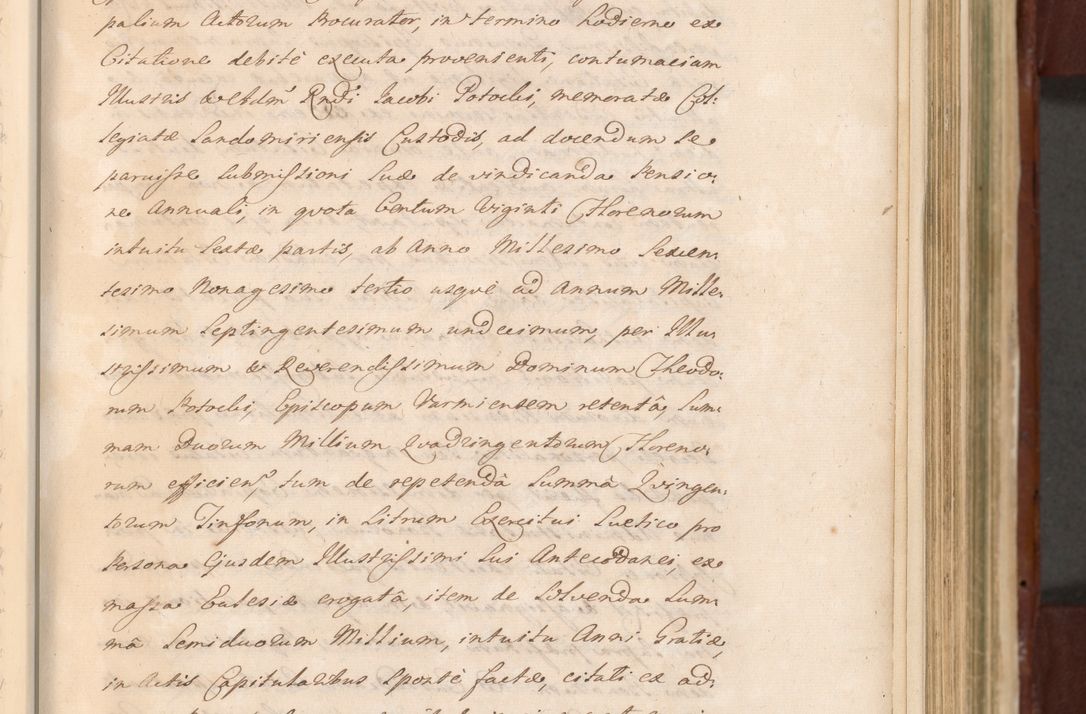 palium Actorum Procurator, in termino hodierno ex
Citatione debitè executa provenienti, contumaciam
Illustris &
Rndi Iacobi Potocki, memoratæ Col:
legiatæ Sandomiriensis Custodis, ad docendum se
paruisse submissioni suæ de vindicanda Pensio:
ne Annuali, in quota Centum Viginti Florenorum
intuitu Sextæ partis, ab Anno Millesimo Sexcen:
tesimo Nonagesimo tertio usque ad Annum Mille:
simum Septingentesimum undecimum, per Illu:
strissimum & Reverendissimum Dominum Theodo:
rum Potocki, Episcopum Varmiensem retentâ, Sum:
mam Duorum Millium Quadringentorum Floreno:
rum efficien, tum de repetendâ Summâ Quingen:
torum Tinfonum, in Litrum Exercitui Suetico pro
Persona Ejusdem Illustrissimi sui Antecedanei, ex
massa Ecclesiæ erogatâ, item de solvenda Sum:
mâ Semiduorum Millium, intuitu Anni Gratiæ,
in Actis Capitularibus spontè factæ, citati ex ad: